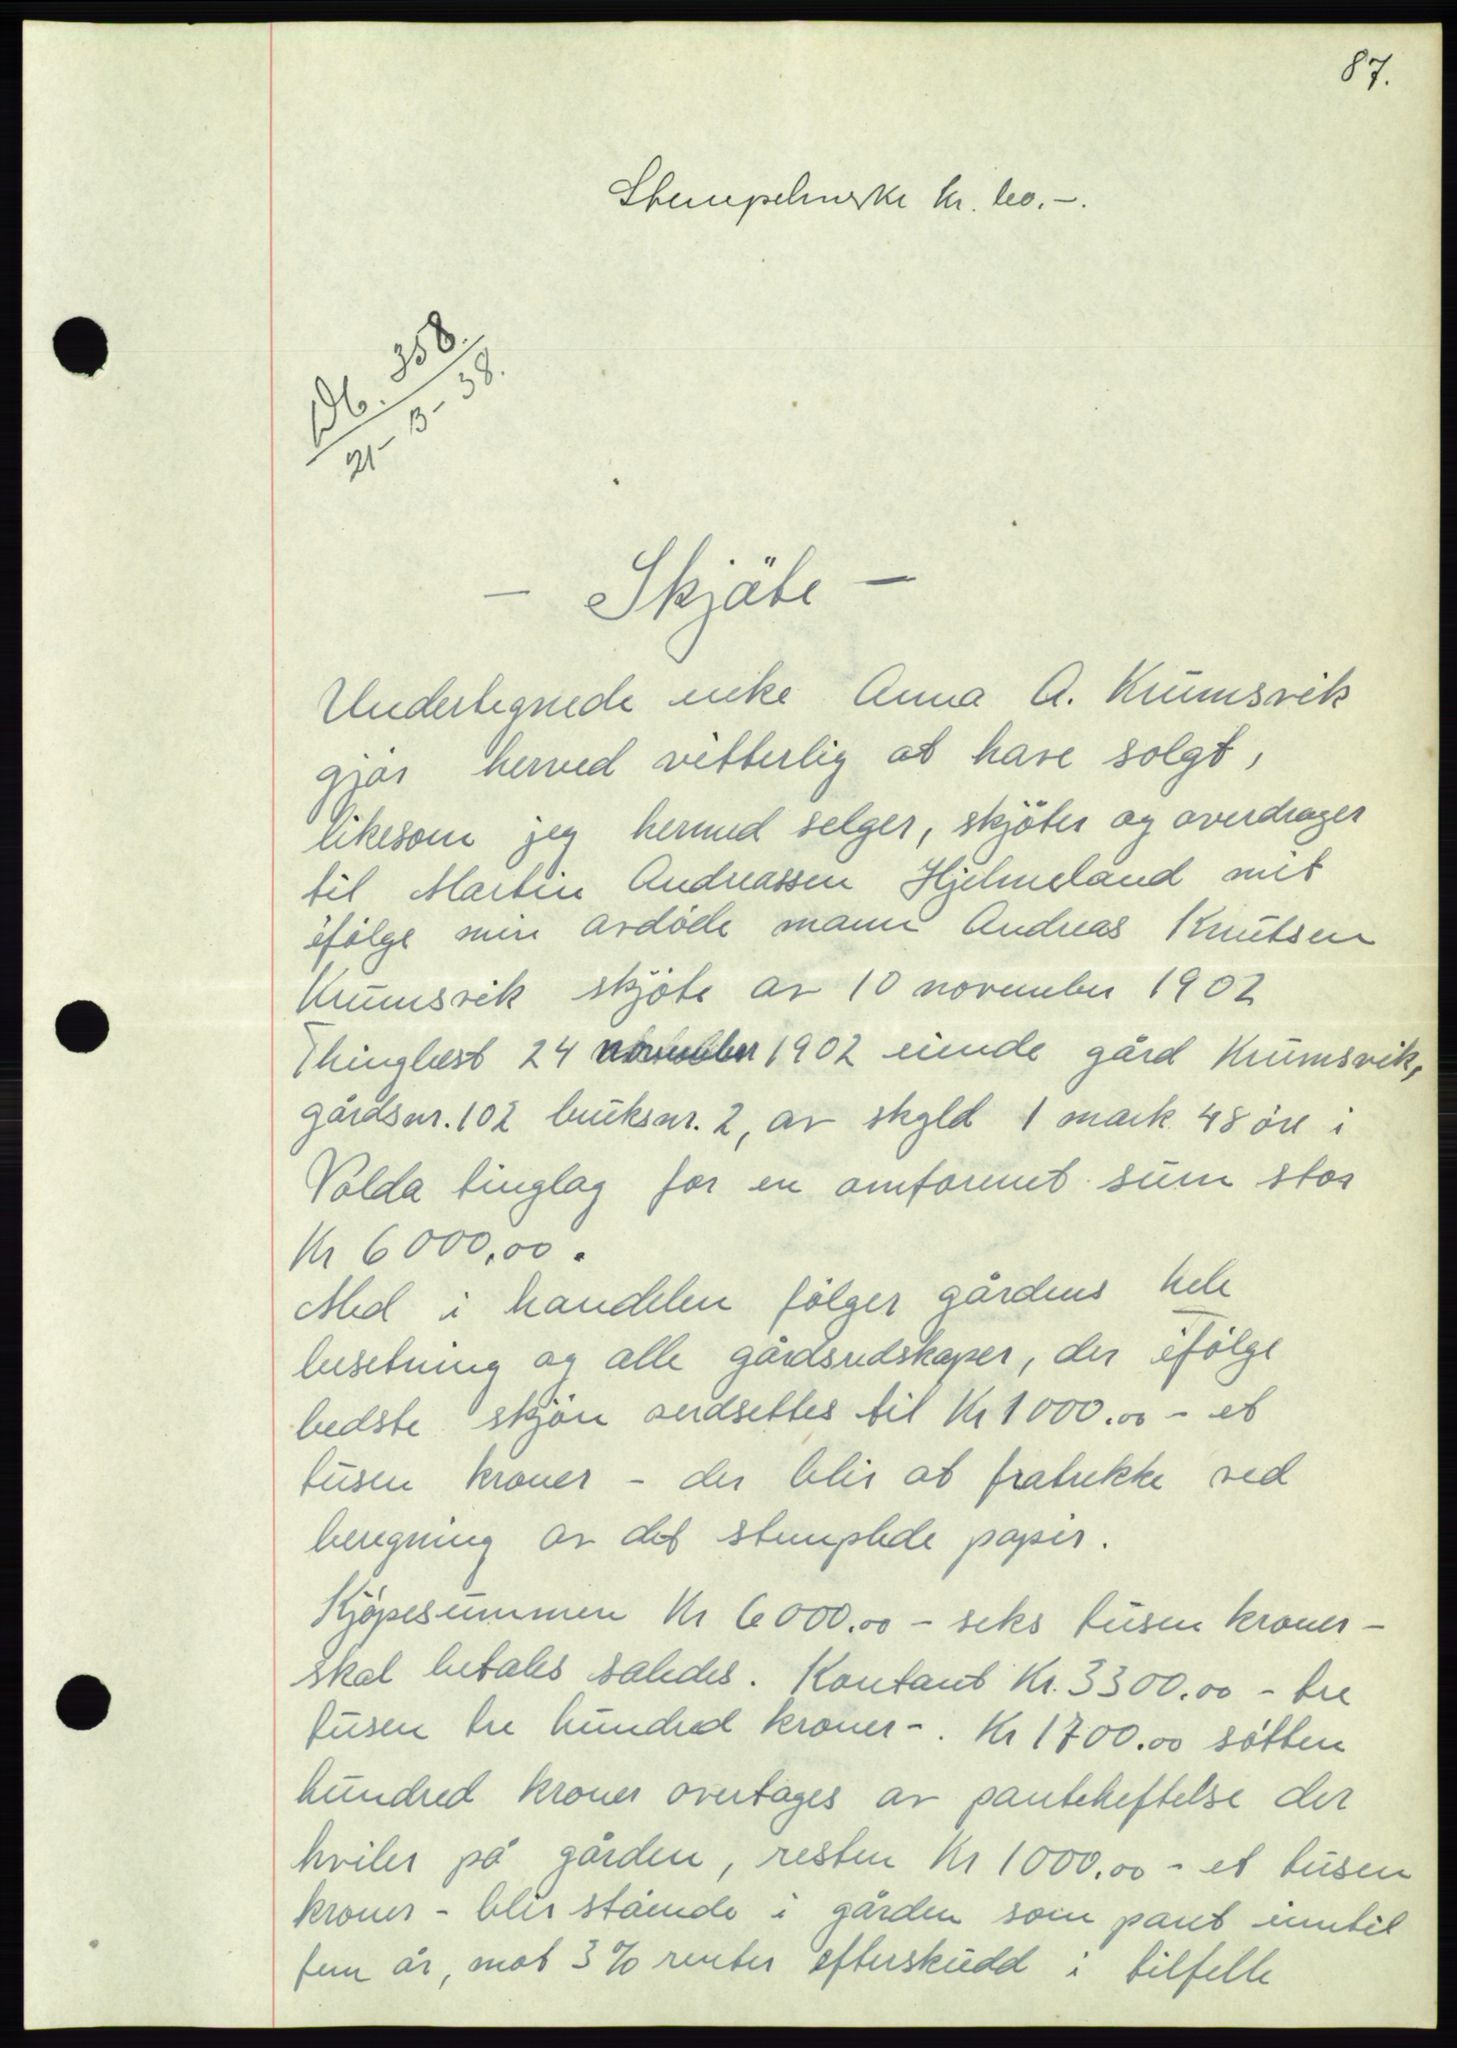 87.
Stempelmerke kr. 60.-.
Db. 358.
21-3-38.
- Skjöte -
Undertegnede enke Anna A. Krumsvik
gjör herved vitterlig at have solgt,
likesom jeg hermed selger, skjöter og overdrager
til Martin Andreassen Hjelmeland mit
ifölge min avdöde mann Andreas Knutsen
Krumsvik skjöte av 10 november 1902
Thinglæst 24 november 1902 eiende gård Krumsvik,
gårdsnr. 102 bruksnr. 2, av skyld 1 mark 48 öre i
Volda tinglag for en omforenet sum stor
Kr 6000,00.
Med i handelen fölger gårdens hele
besetning og alle gårdsredskaper, der ifölge
bedste skjön verdsettes til Kr 1000.00 - et
tusen kroner - der blir at fratrekke ved
beregning av det stemplede papir.
Kjöpesummen Kr 6000.00 - seks tusen kroner -
skal betales således. Kontant Kr. 3300.00 - tre
tusen tre hundred kroner -. Kr 1700.00 sötten
hundred kroner overtages av panteheftelse der
hviler på gården, resten Kr 1000.00 - et tusen
kroner - blir stående i gården som pant inntil
fem år, mot 3% renter efterskudd i tilfelle